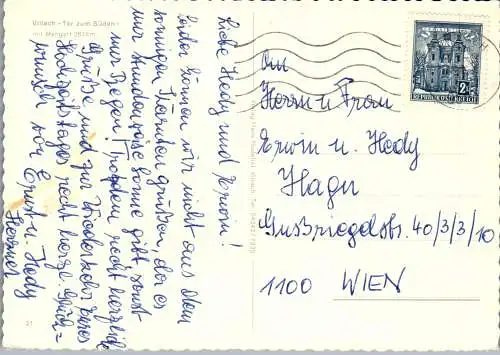 Villach - Tor zum Süden
mit Mangart 2678 m
Liebe Hedy und Erwin!
Leider können wir nicht aus dem
sonnigen Kärnten grüßen, da es
nur stundenweise Sonne gibt, sonst
nur Regen! Trotzdem, recht herzliche
Grüße und zur Wiederkehr Eures
Hochzeitstages recht herzl. Glück=
wünsche von Ernst u. Hedy
An
Herrn u. Frau
Erwin u. Hedy
Hager
Gußriegelstr. 40/3/3/10
1100 WIEN
REPUBLIK ÖSTERREICH
21